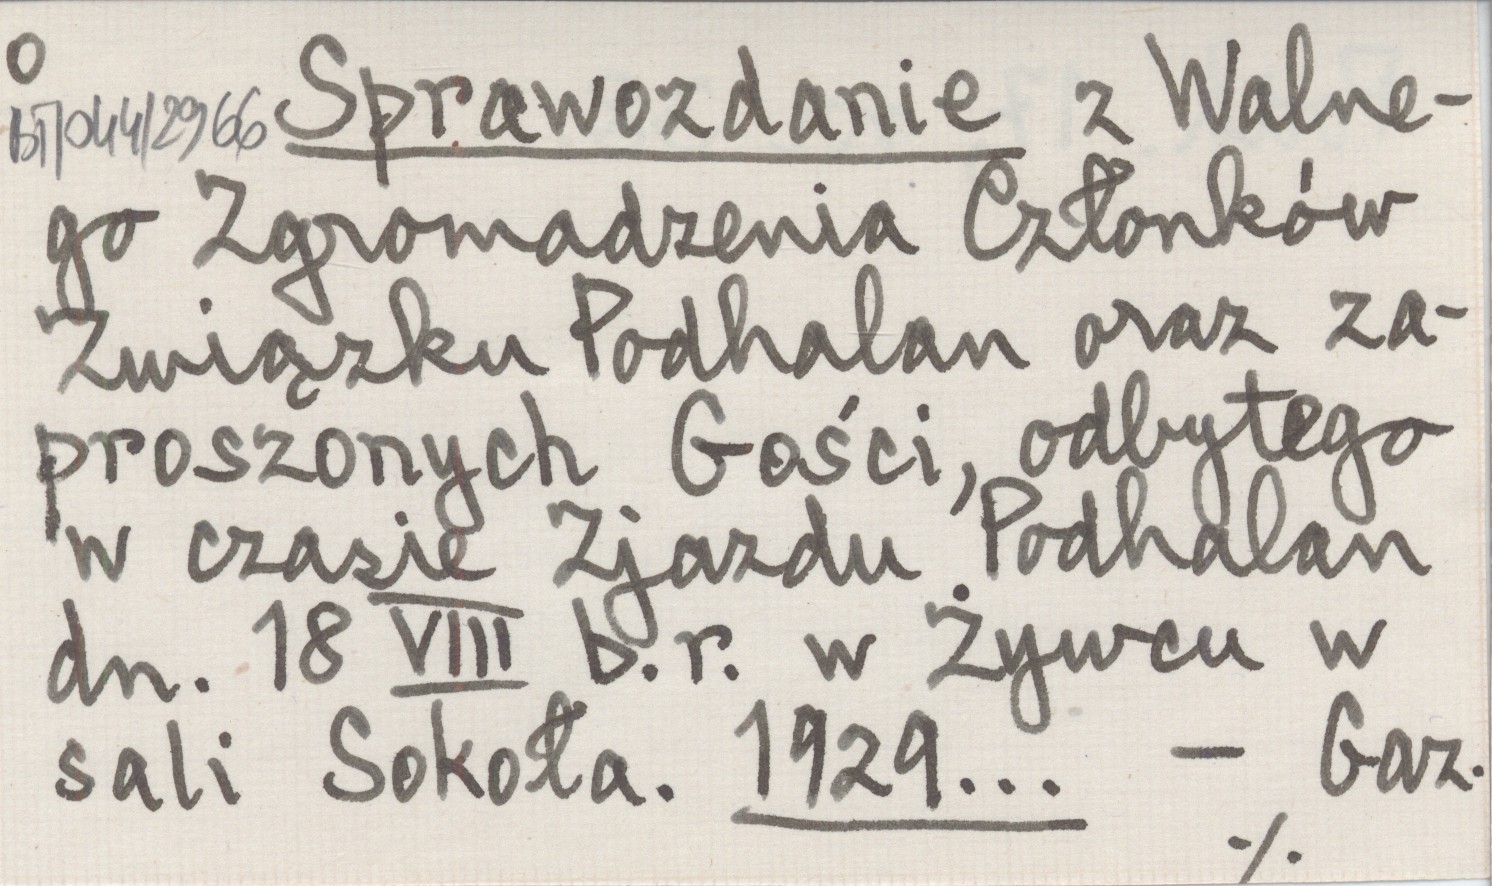 O
BT/044/2966 Sprawozdanie z Walne-
go Zgromadzenia Członków
Związku Podhalan oraz za-
proszonych Gości, odbytego
w czasie Zjazdu Podhalan
dn. 18 VIII b.r. w Żywcu w
sali Sokoła. 1929... — Gaz.
./.